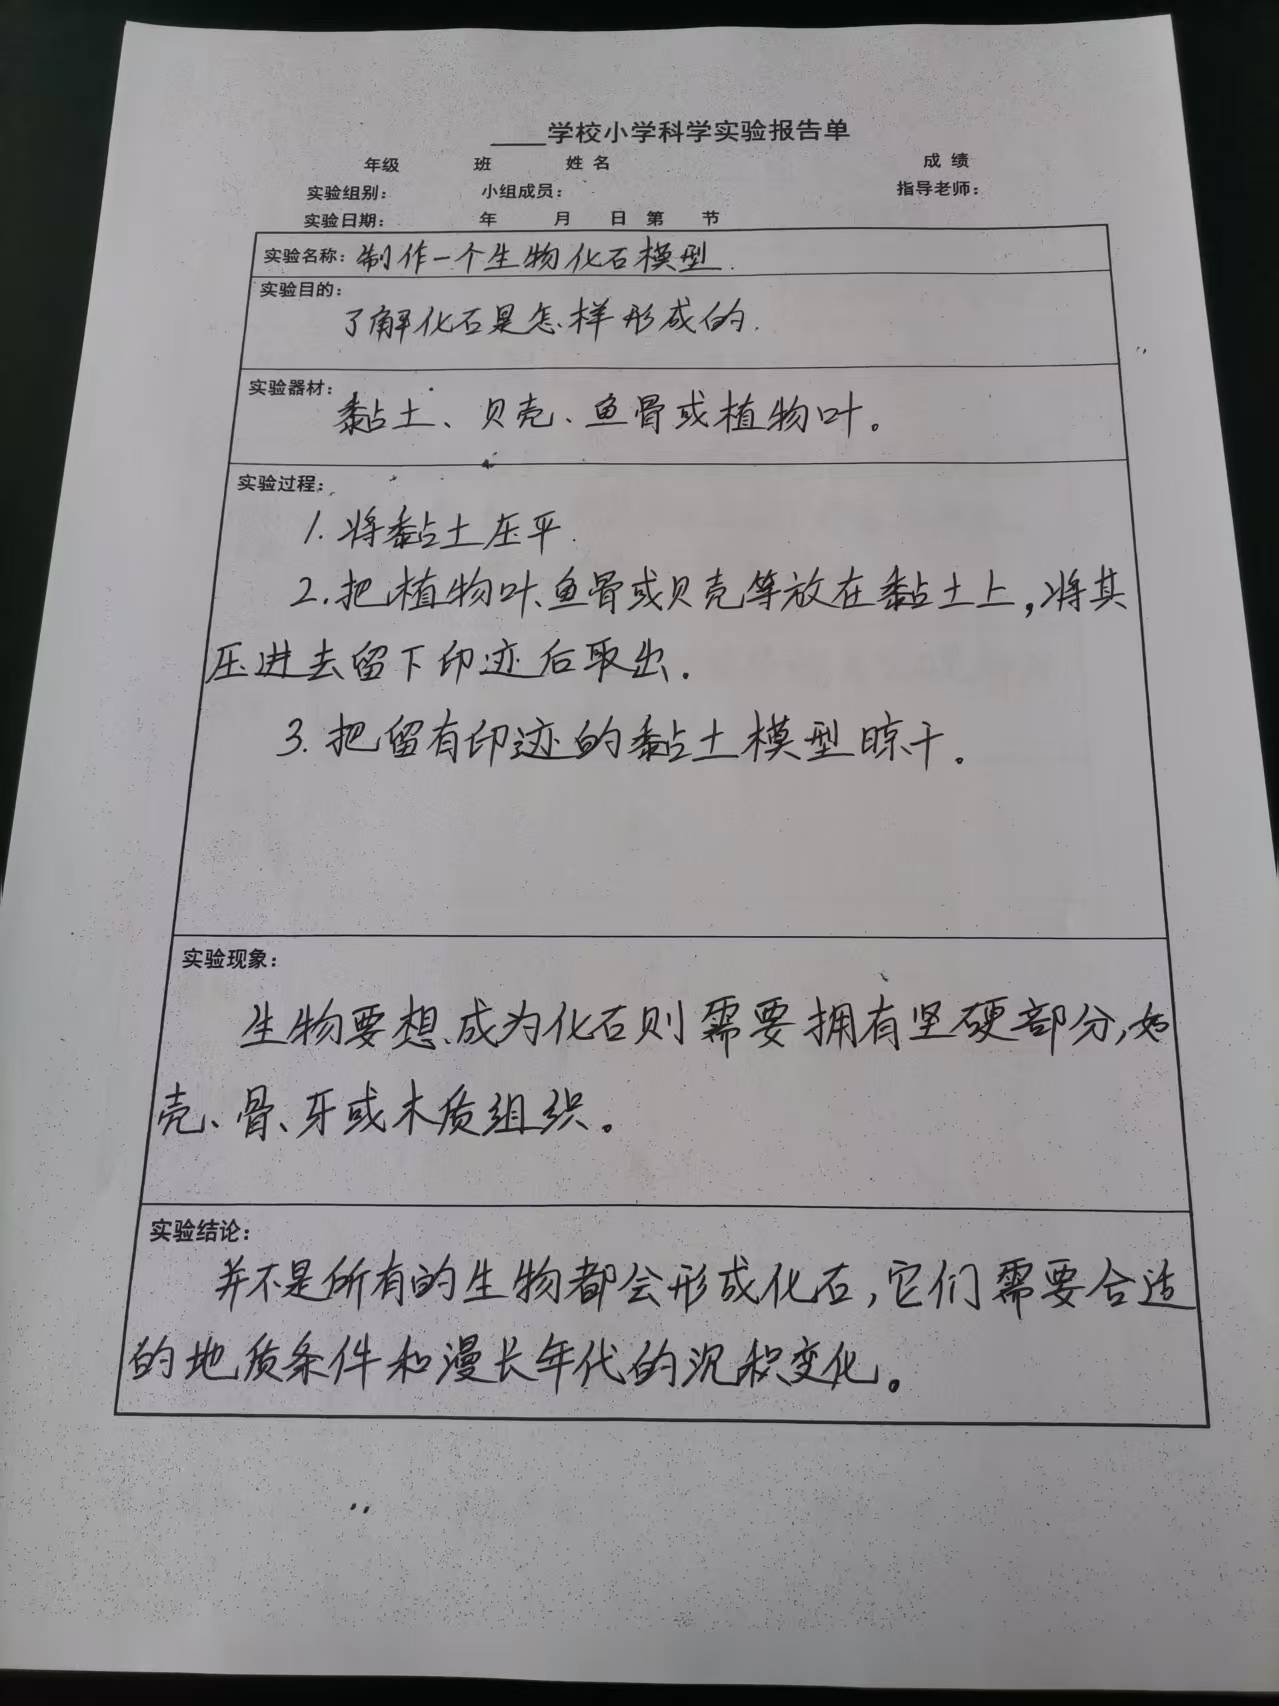 ____学校小学科学实验报告单
年级 班 姓名 成绩
实验组别： 小组成员： 指导老师：
实验日期： 年 月 日 第 节
实验名称：制作一个生物化石模型.
实验目的：
了解化石是怎样形成的.
实验器材：
黏土、贝壳、鱼骨或植物叶。
实验过程：
1. 将黏土压平.
2. 把植物叶、鱼骨或贝壳等放在黏土上，将其
压进去留下印迹后取出.
3. 把留有印迹的黏土模型晾干。
实验现象：
生物要想成为化石则需要拥有坚硬部分，如
壳、骨、牙或木质组织。
实验结论：
并不是所有的生物都会形成化石，它们需要合适
的地质条件和漫长年代的沉积变化。